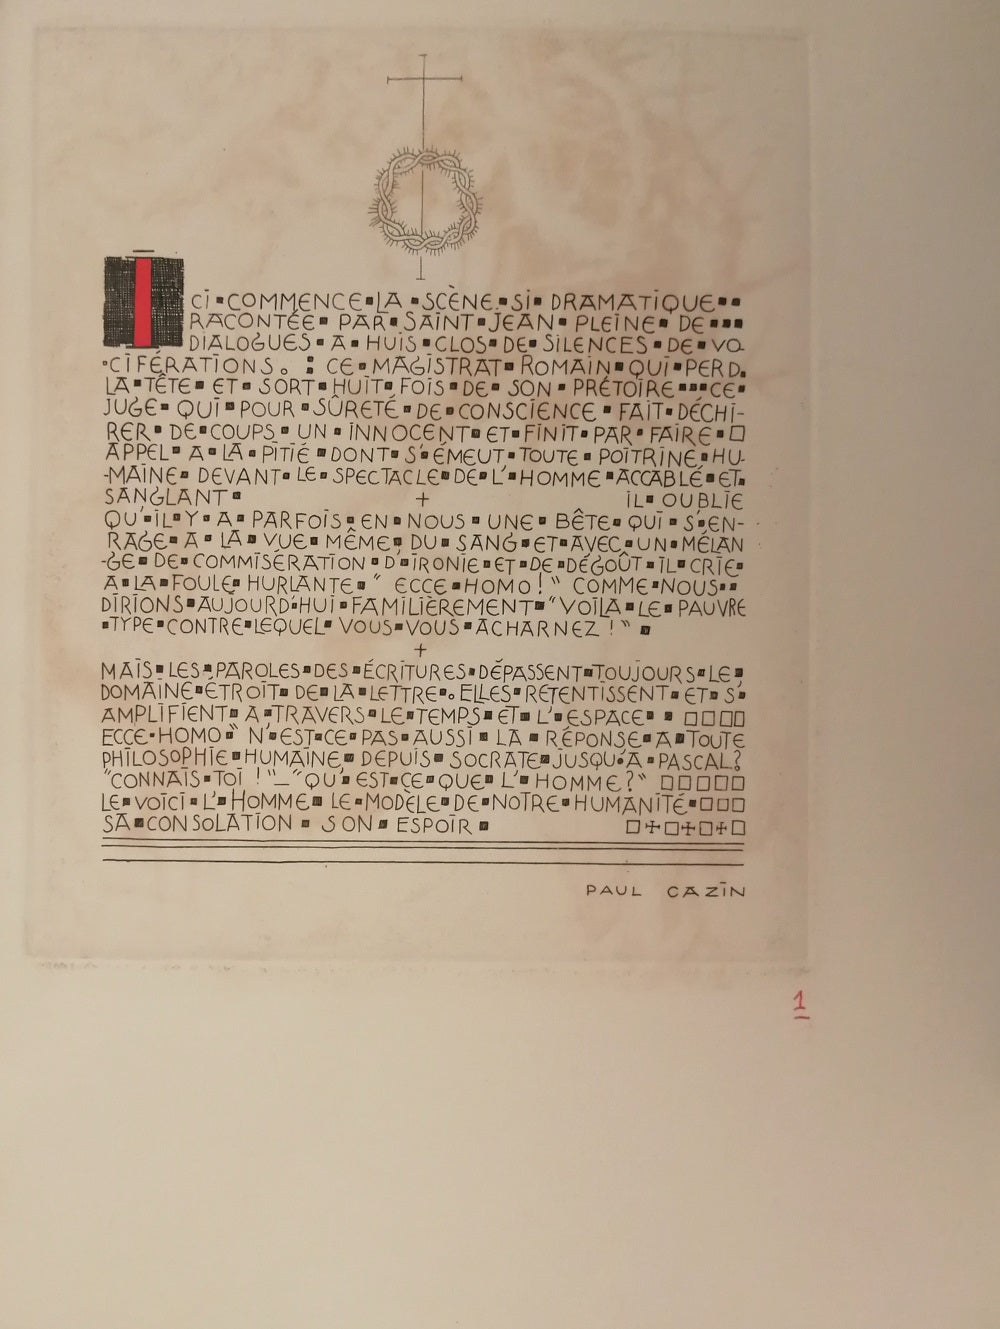 ICI COMMENCE LA SCÈNE SI DRAMATIQUE
RACONTÉE PAR SAINT JEAN PLEINE DE
DIALOGUES A HUIS CLOS DE SILENCES DE VO
CIFÉRATIONS. : CE MAGISTRAT ROMAIN QUI PERD
LA TÊTE ET SORT HUIT FOIS DE SON PRÉTOIRE CE
JUGE QUI POUR SÛRETÉ DE CONSCIENCE FAIT DÉCHI-
RER DE COUPS UN INNOCENT ET FINIT PAR FAIRE
APPEL A LA PITIÉ DONT S'ÉMEUT TOUTE POITRINE HU-
-MAINE DEVANT LE SPECTACLE DE L'HOMME ACCABLÉ ET
SANGLANT + IL OUBLIE
QU'IL Y A PARFOIS EN NOUS UNE BÊTE QUI S'EN-
RAGE A LA VUE MÊME DU SANG ET AVEC UN MÉLAN
-GE DE COMMISÉRATION D'IRONIE ET DE DÉGOÛT IL CRIE
A LA FOULE HURLANTE " ECCE HOMO ! " COMME NOUS
DIRIONS AUJOURD'HUI FAMILIÈREMENT "VOILA LE PAUVRE
TYPE CONTRE LEQUEL VOUS VOUS ACHARNEZ ! "
+
MAIS LES PAROLES DES ÉCRITURES DÉPASSENT TOUJOURS LE
DOMAINE ÉTROIT DE LA LETTRE. ELLES RETENTISSENT ET S'
AMPLIFIENT A TRAVERS LE TEMPS ET L'ESPACE
ECCE HOMO " N'EST CE PAS AUSSI LA RÉPONSE A TOUTE
PHILOSOPHIE HUMAINE DEPUIS SOCRATE JUSQU'A PASCAL?
"CONNAIS TOI ! "_"QU'EST CE QUE L'HOMME ? "
LE VOICI L'HOMME LE MODÈLE DE NOTRE HUMANITÉ
SA CONSOLATION SON ESPOIR
PAUL CAZIN
1